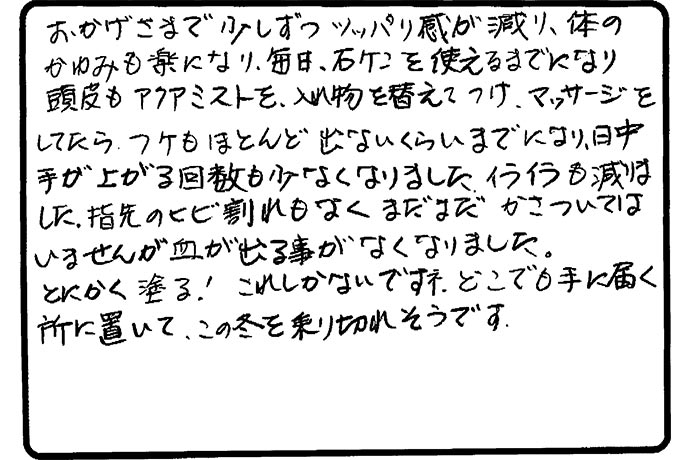 おかげさまで少しずつツッパリ感が減り、体の
かゆみも楽になり、毎日、石ケンを使えるまでになり
頭皮もアクアミストを、入れ物を替えてつけ、マッサージを
してたら、フケもほとんど出ないくらいまでになり、日中
手が上がる回数も少なくなりました。イライラも減りま
した。指先のヒビ割れもなく まだまだ かさついては
いませんが血が出る事がなくなりました。
とにかく塗る! これしかないですネ。どこでも手に届く
所に置いて、この冬を乗り切れそうです。